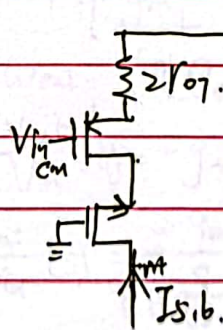 2ro7.
Vin
CM
I5,6.